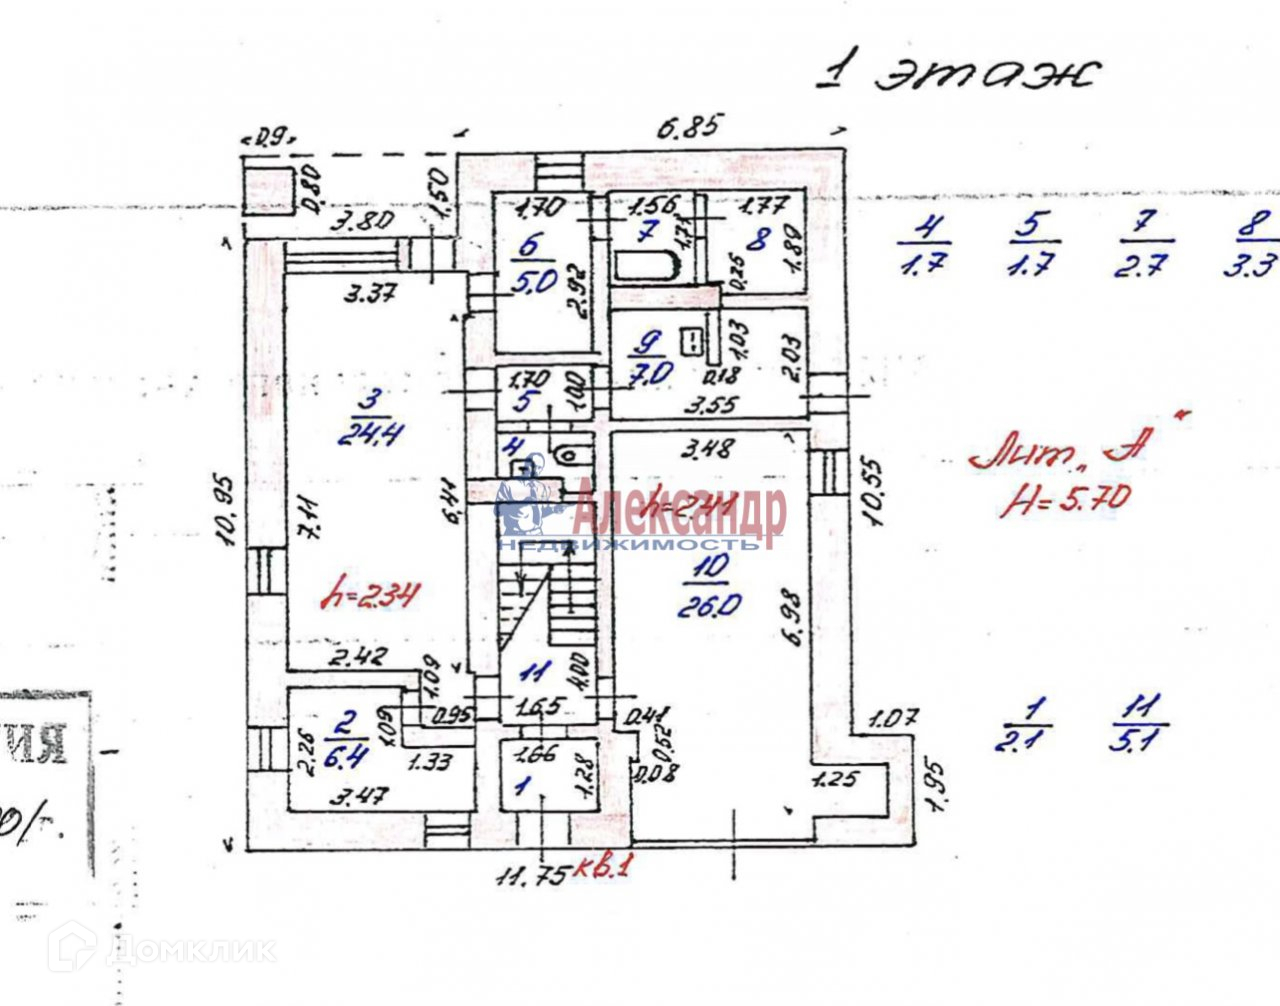 1 этаж
6.85
0.9
0.80
3.80
1.50
1.70
1.56
1.77
7
8
6
5.0
1.71
1.89
0.25
2.92
4
1.7
5
1.7
7
2.7
8
3.3
3.37
9
7.0
1.03
2.03
0.18
1.70
5
1.00
3.55
3
24.4
4
3.48
Лит. "А"
H=5.70
10.95
7.11
6.41
h=2.41
10.55
Александр
недвижимость
10
26.0
6.98
h=2.34
2.42
1.09
11
4.00
1.65
0.95
0.41
0.52
0.08
1.07
1
2.1
11
5.1
2
6.4
2.26
1.09
1.33
3.47
1.66
1
1.28
1.25
1.95
11.75
кв.1
Домклик